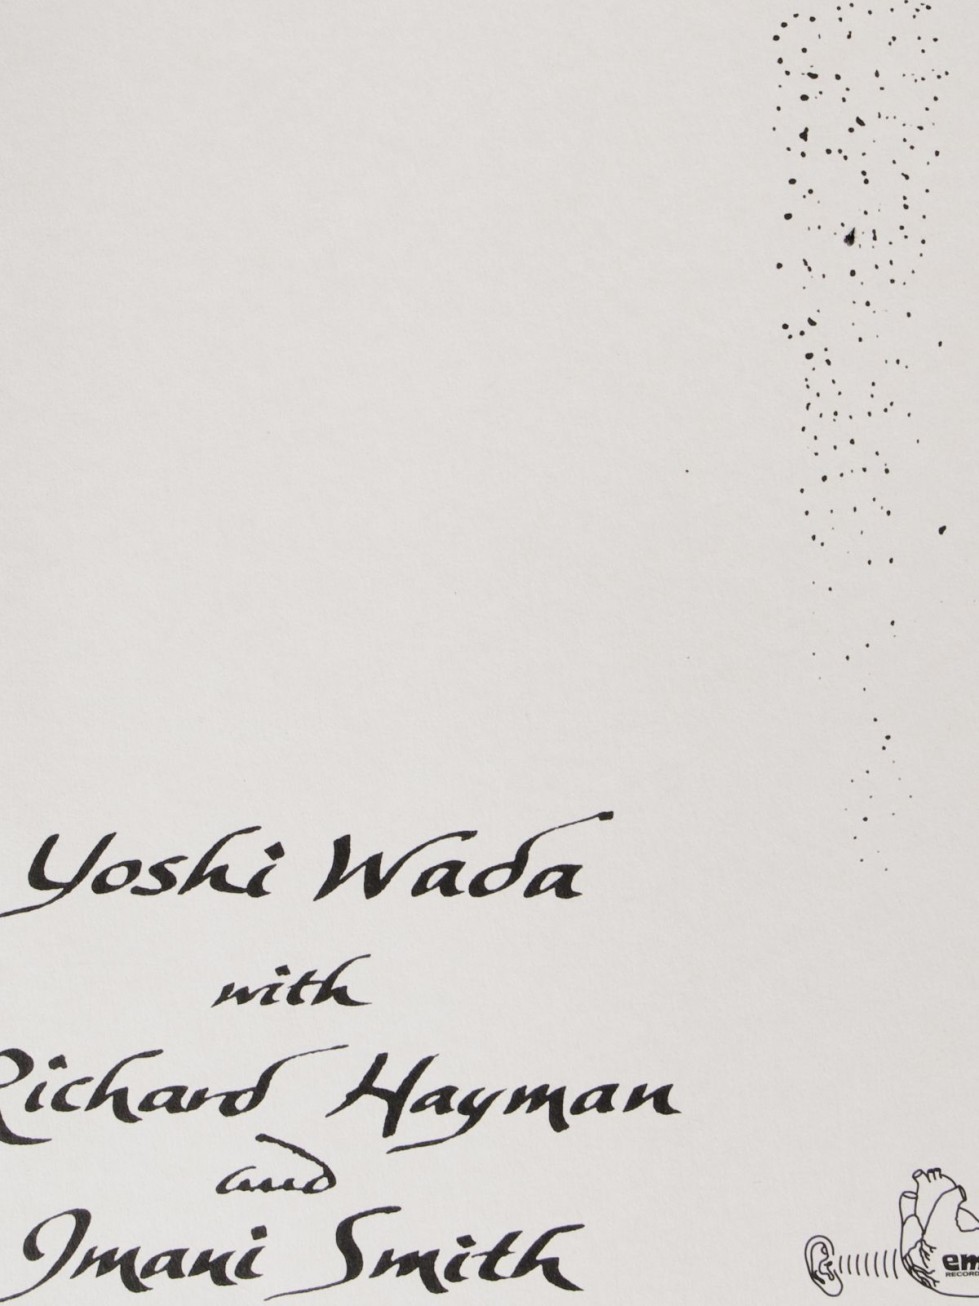 Yoshi Wada
with
Richard Hayman
and
Imani Smith
em
RECORD